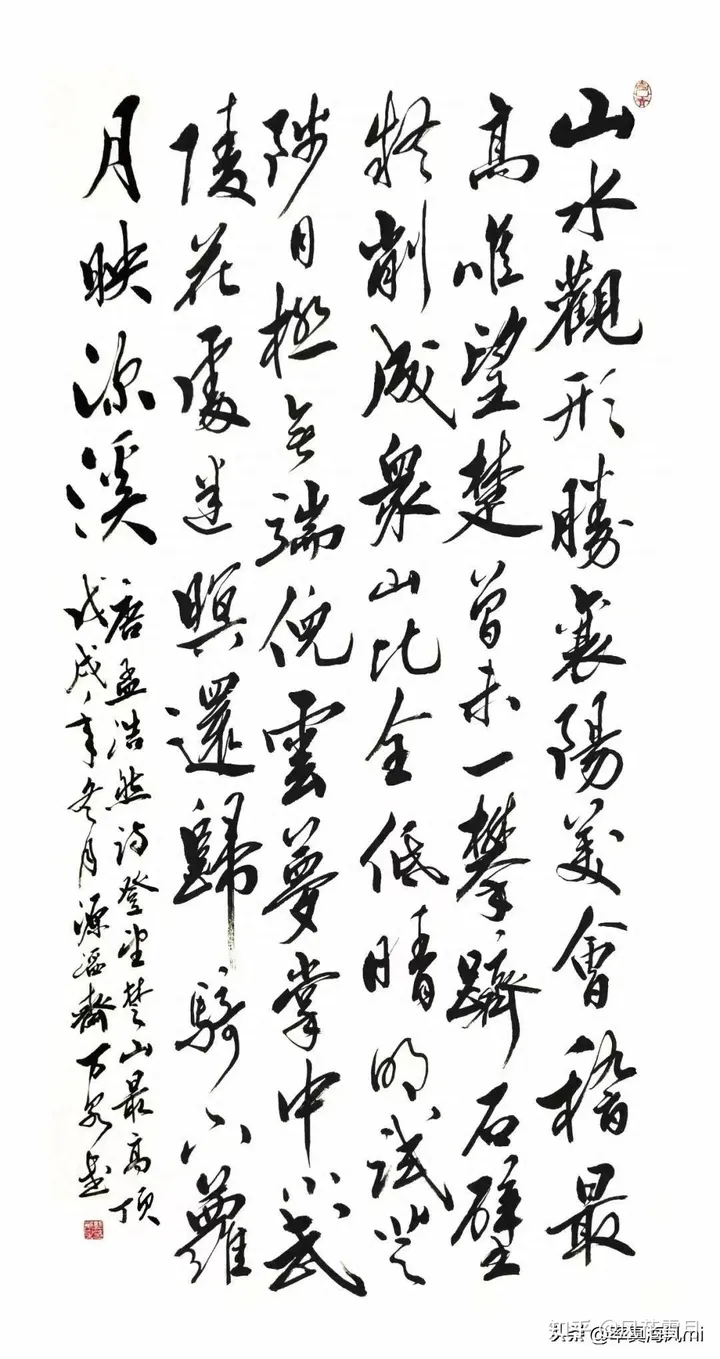 山水觀形勝襄陽美會稽最
高唯望楚曾未一攀躋石壁
疑削成衆山比全低晴明試登
陟目極無端倪雲夢掌中小武
陵花處迷暝還歸騎下蘿
月映深溪
唐孟浩然诗登望楚山最高顶
戊戌年冬月源齋万泉书
知乎
头条 @率真海风mi